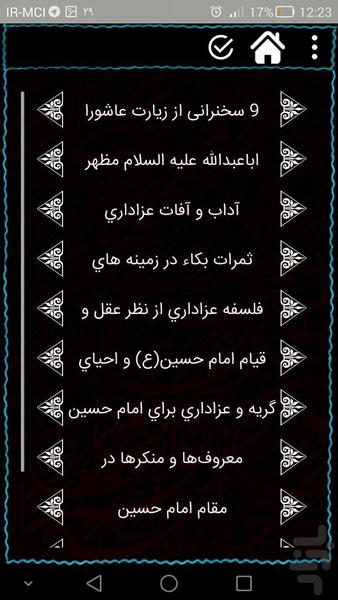 IR-MCI ۲۹ 17% 12:23
9 سخنرانی از زیارت عاشورا
اباعبدالله علیه السلام مظهر
آداب و آفات عزاداري
ثمرات بکاء در زمینه هاي
فلسفه عزاداري از نظر عقل و
قیام امام حسین(ع) و احیاي
گریه و عزاداري براي امام حسین
معروف‌ها و منکرها در
مقام امام حسین
بازار